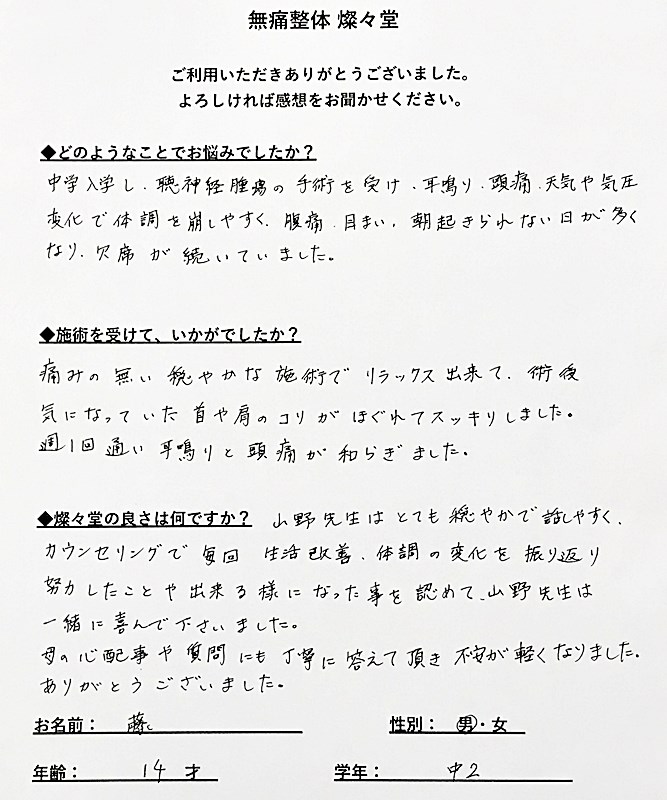 無痛整体 燦々堂
ご利用いただきありがとうございました。
よろしければ感想をお聞かせください。
◆どのようなことでお悩みでしたか？
中学入学し、聴神経腫瘍の手術を受け、耳鳴り、頭痛、天気や気圧
変化で体調を崩しやすく、腹痛、目まい、朝起きられない日が多く
なり、欠席が続いていました。
◆施術を受けて、いかがでしたか？
痛みの無い穏やかな施術でリラックス出来て、術後
気になっていた首や肩のコリがほぐれてスッキリしました。
週1回通い耳鳴りと頭痛が和らぎました。
◆燦々堂の良さは何ですか？ 山野先生はとても穏やかで話しやすく、
カウンセリングで毎回 生活改善、体調の変化を振り返り
努力したことや出来る様になった事を認めて、山野先生は
一緒に喜んで下さいました。
母の心配事や質問にも丁寧に答えて頂き不安が軽くなりました。
ありがとうございました。
お名前： 性別： 男・女
年齢： 14 才 学年： 中2